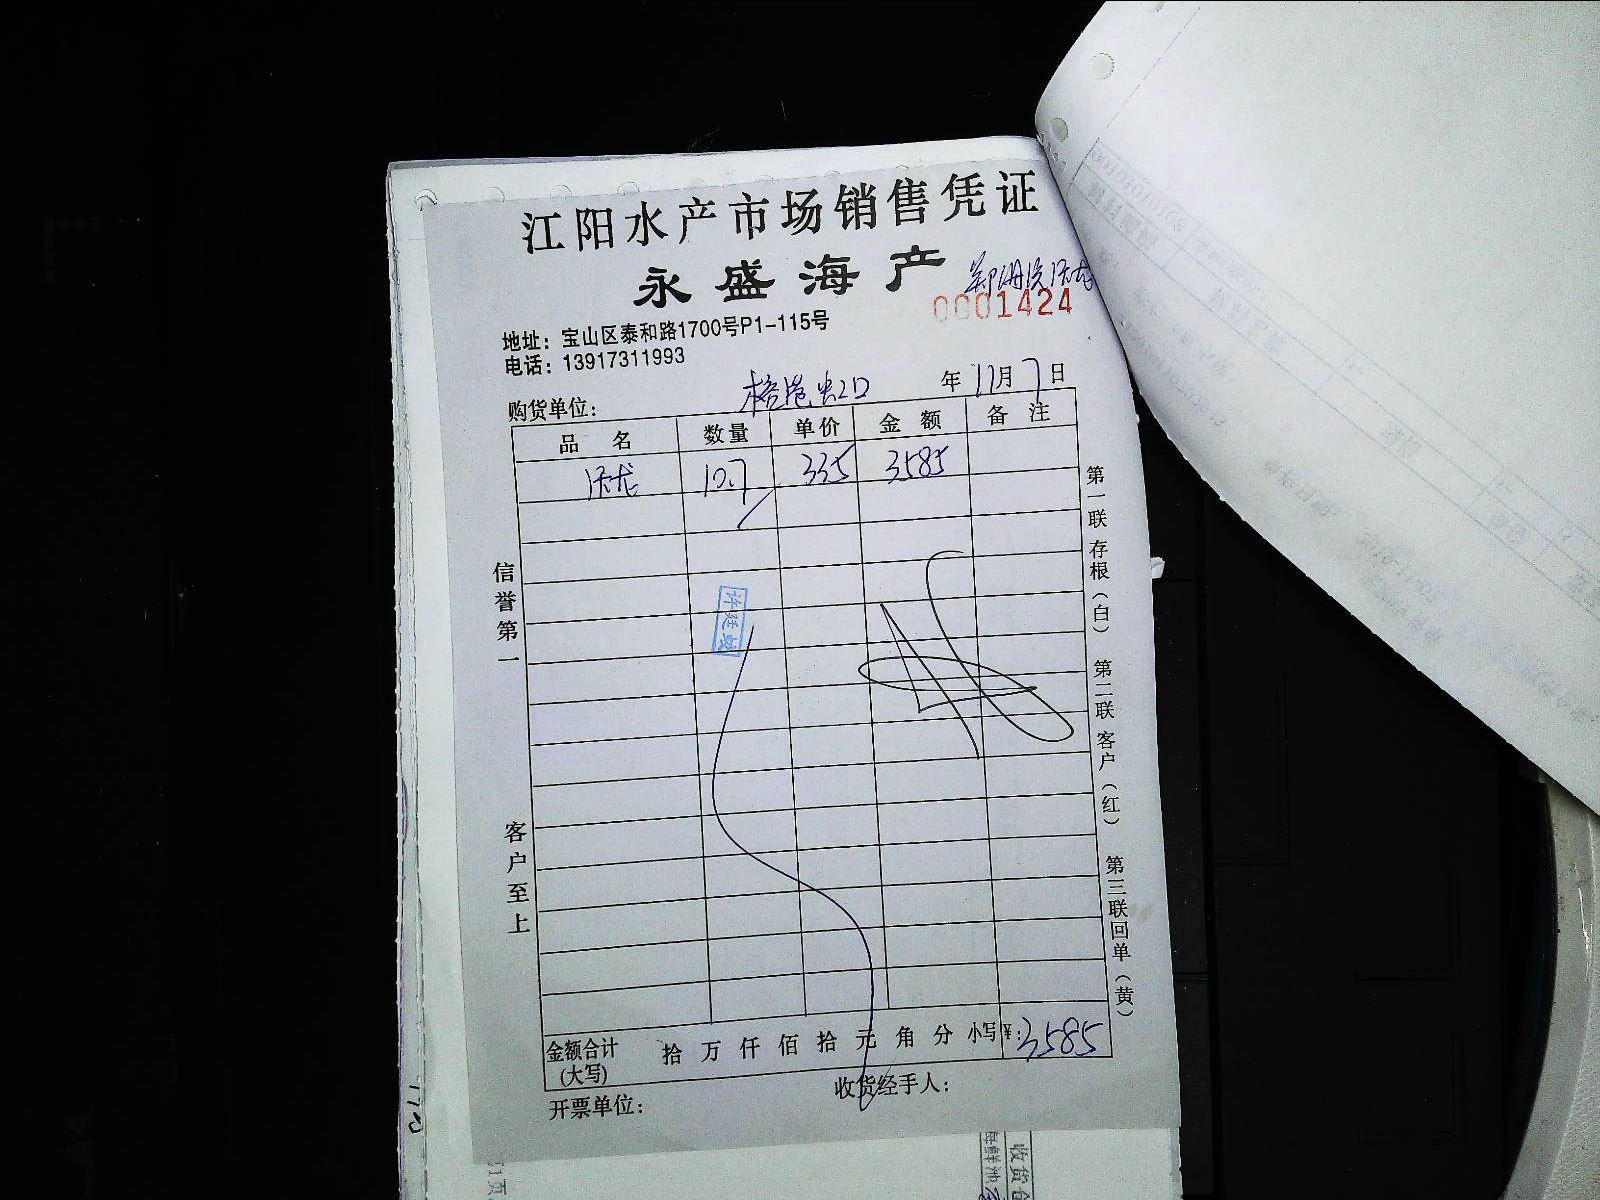 江阳水产市场销售凭证
永盛海产
0001424
地址：宝山区泰和路1700号P1-115号
电话：13917311993
购货单位：
年 11月 7日
品 名 数量 单价 金 额 备 注
10.7 335 3585
信誉第一
客户至上
第一联 存根（白） 第二联 客户（红） 第三联 回单（黄）
金额合计 拾 万 仟 佰 拾 元 角 分 小写 ¥：3585
(大写)
开票单位： 收货经手人：